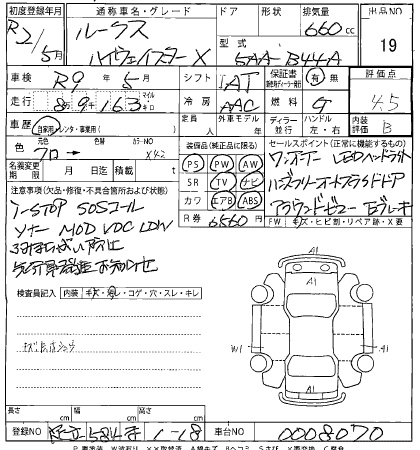 初度登録年月 通称車名・グレード ドア 形状 排気量 出品NO
R2/5月 ルークス 660cc 19
ハイウェイスター X 型式 5AA-B44A
車検 R9年5月 シフト IAT 保証書 有 無 評価点
走行 89163 マイルキロ 冷房 AAC 燃料 G 4.5
車歴 自家用 レンタ・事業用( ) 定員 人 外車モデル 年 ディーラー 並行 ハンドル 左・右 内装評価 B
色 クロ→ カラーNO X42
装備品(純正品に限る) セールスポイント(正常に機能するもの)
名義変更期限 月 日迄 積込 月
PS PW AW
SR TV ナビ
カワ エアB ABS
R券 6560円
ワンオーナー LEDヘッドライト
ハンズフリーオートスライドドア
アラウンドビュー Eブレーキ
FW キズ・ヒビ割・リペア跡・X要
注意事項(欠品・修復・不具合箇所および状態)
I-STOP SOSコール
ソナー MOD VDC LDW
検査員記入 内装 キズ・汚レ・コゲ・穴・スレ・キレ
A1
W1
A1
A1
長さ cm 幅 cm 高さ cm
登録NO 1-18 車台NO 0008070